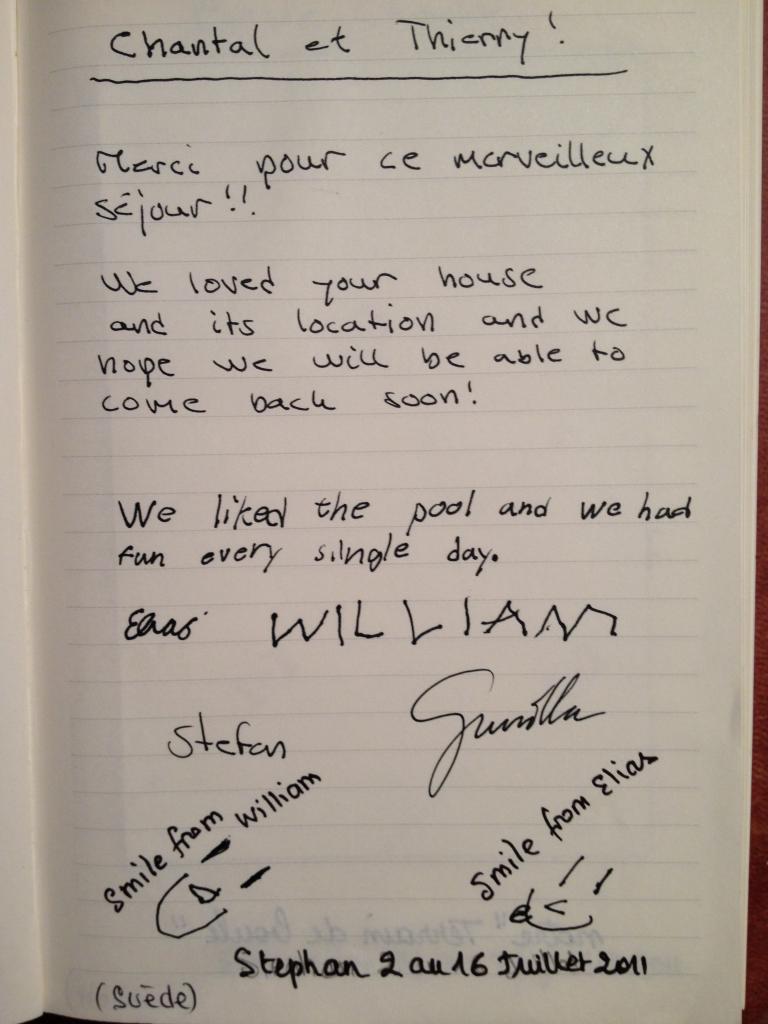 Chantal et Thierry!
Merci pour ce merveilleux
séjour!!
We loved your house
and its location and we
hope we will be able to
come back soon!
We liked the pool and we had
fun every single day.
Elias WILLIAM
Stefan Gunilla
smile from William
smile from Elias
Stephan 2 au 16 Juillet 2011
(Suède)